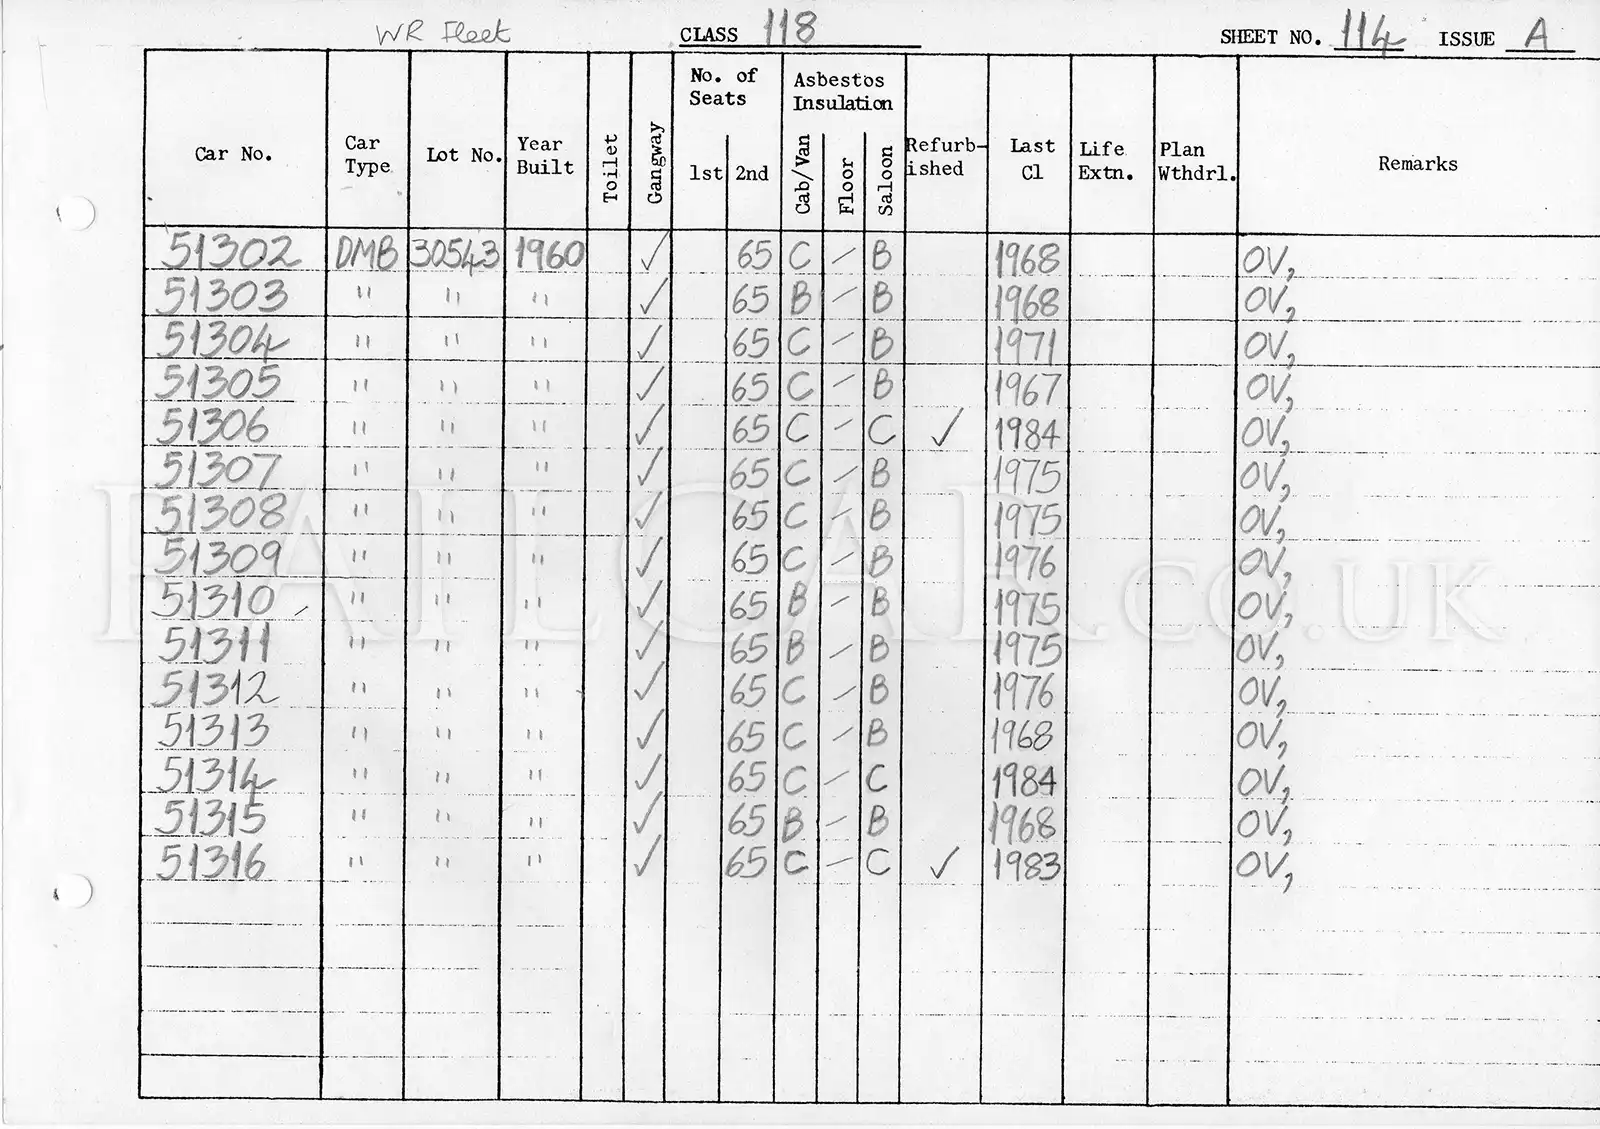 WR Fleet CLASS 118 SHEET NO. 114 ISSUE A
No. of Seats Asbestos Insulation
Car No. Car Type Lot No. Year Built Toilet Gangway 1st 2nd Cab/Van Floor Saloon Refurb-ished Last Cl Life Extn. Plan Wthdrl. Remarks
51302 DMB 30543 1960 ✓ 65 C – B 1968 OV,
51303 " " " ✓ 65 B – B 1968 OV,
51304 " " " ✓ 65 C – B 1971 OV,
51305 " " " ✓ 65 C – B 1967 OV,
51306 " " " ✓ 65 C – C ✓ 1984 OV,
51307 " " " ✓ 65 C – B 1975 OV,
51308 " " " ✓ 65 C – B 1975 OV,
51309 " " " ✓ 65 C – B 1976 OV,
51310 " " " ✓ 65 B – B 1975 OV,
51311 " " " ✓ 65 B – B 1975 OV,
51312 " " " ✓ 65 C – B 1976 OV,
51313 " " " ✓ 65 C – B 1968 OV,
51314 " " " ✓ 65 C – C 1984 OV,
51315 " " " ✓ 65 B – B 1968 OV,
51316 " " " ✓ 65 C – C ✓ 1983 OV,
RAILCAR.CO.UK